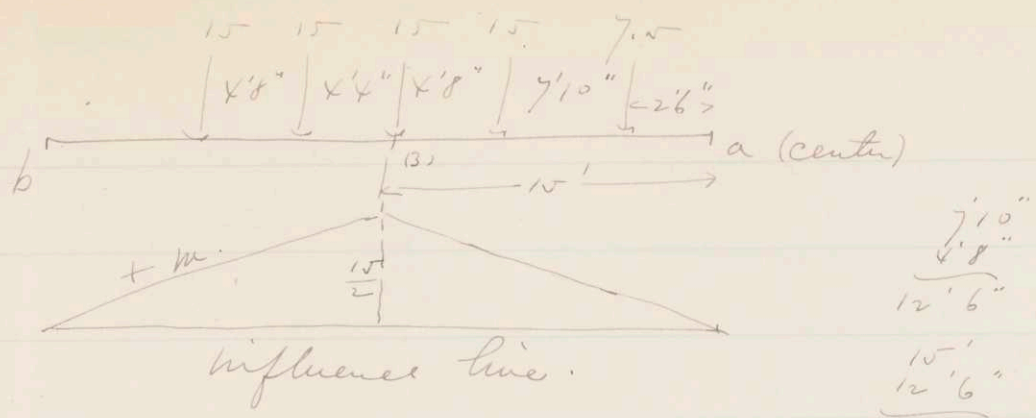 15 15 15 15 7.5
4'8" 4'4" 4'8" 7'10" 2'6"
b (3) a (center)
15'
+ m.
15/2
influence line.
7'10"
4'8"
12'6"
15'
12'6"